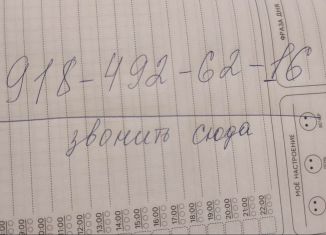 918-492-62-16
звонить сюда
ФРАЗА ДНЯ
МОЕ НАСТРОЕНИЕ
10:00
11:00
12:00
13:00
14:00
15:00
16:00
17:00
18:00
19:00
20:00
21:00
22:00